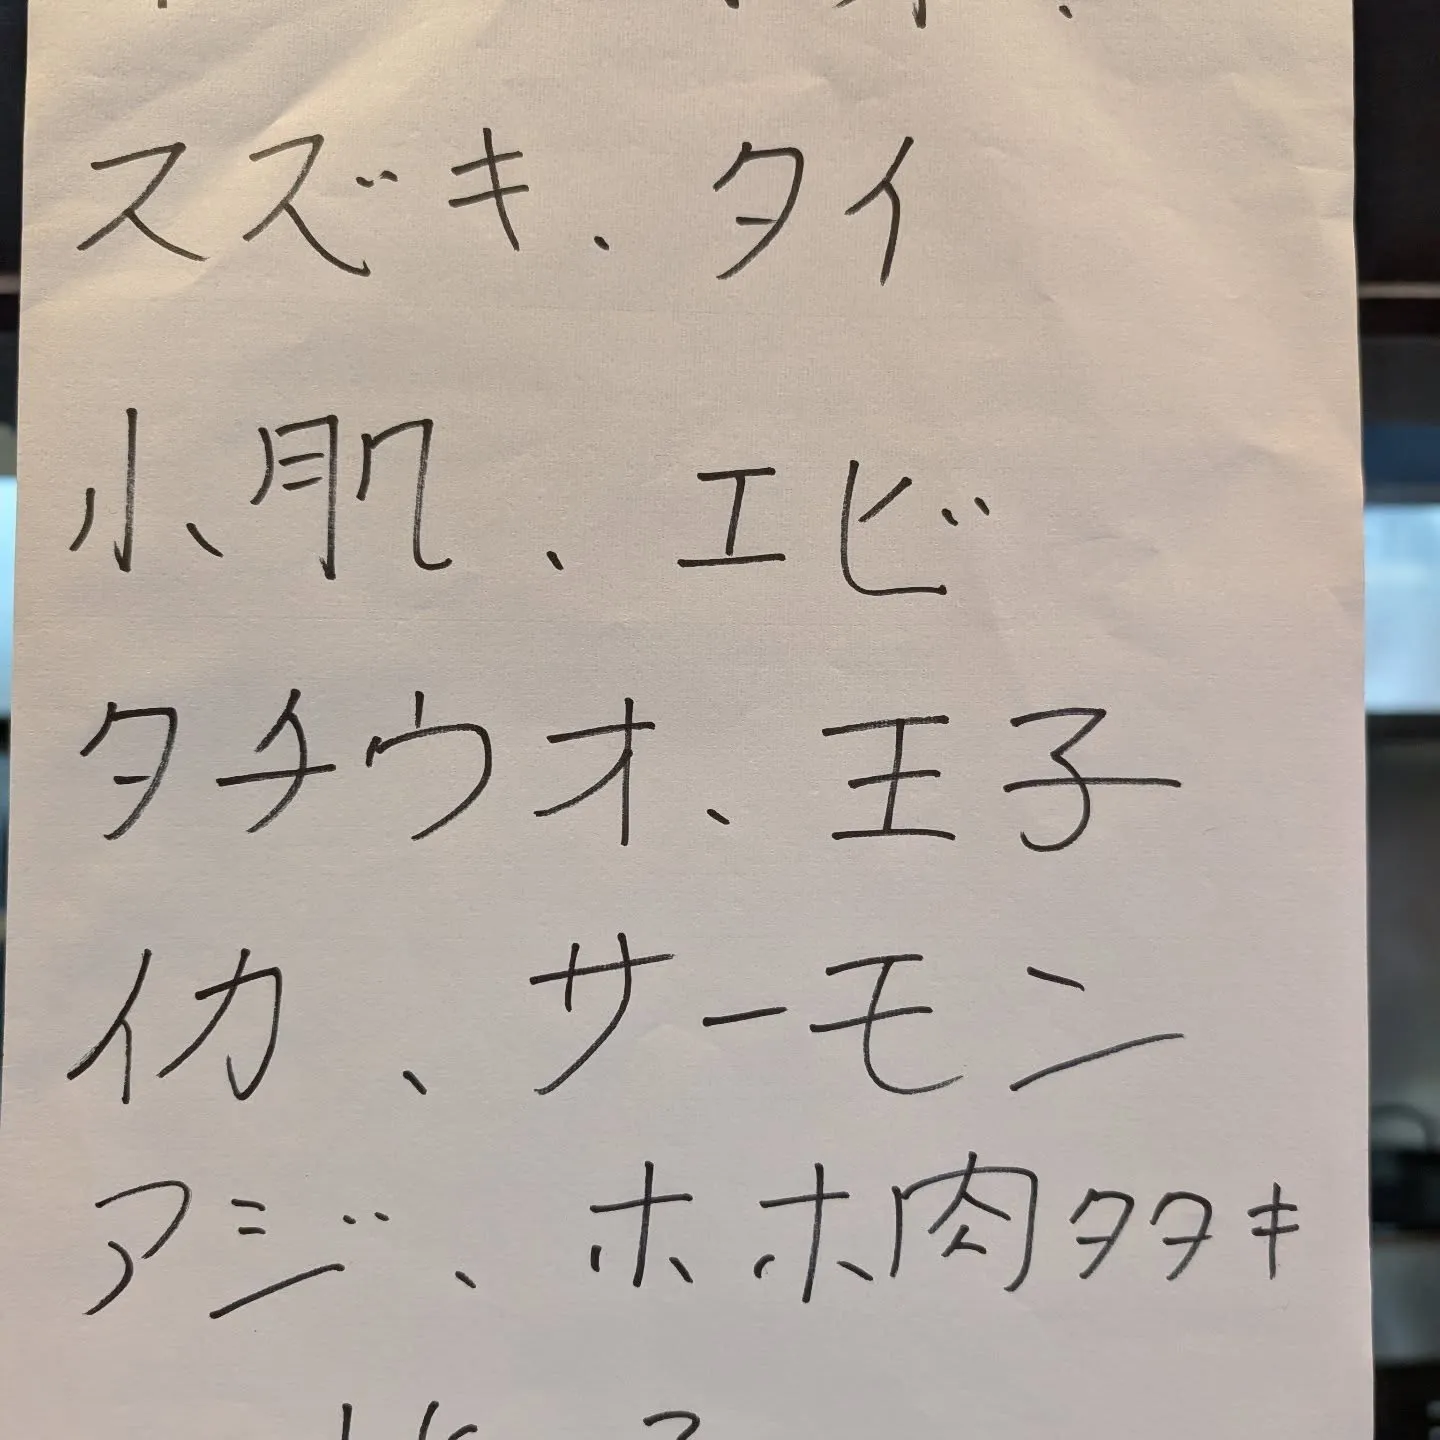 スズキ、タイ
小肌、エビ
タチウオ、王子
イカ、サーモン
アジ、ホホ肉タタキ